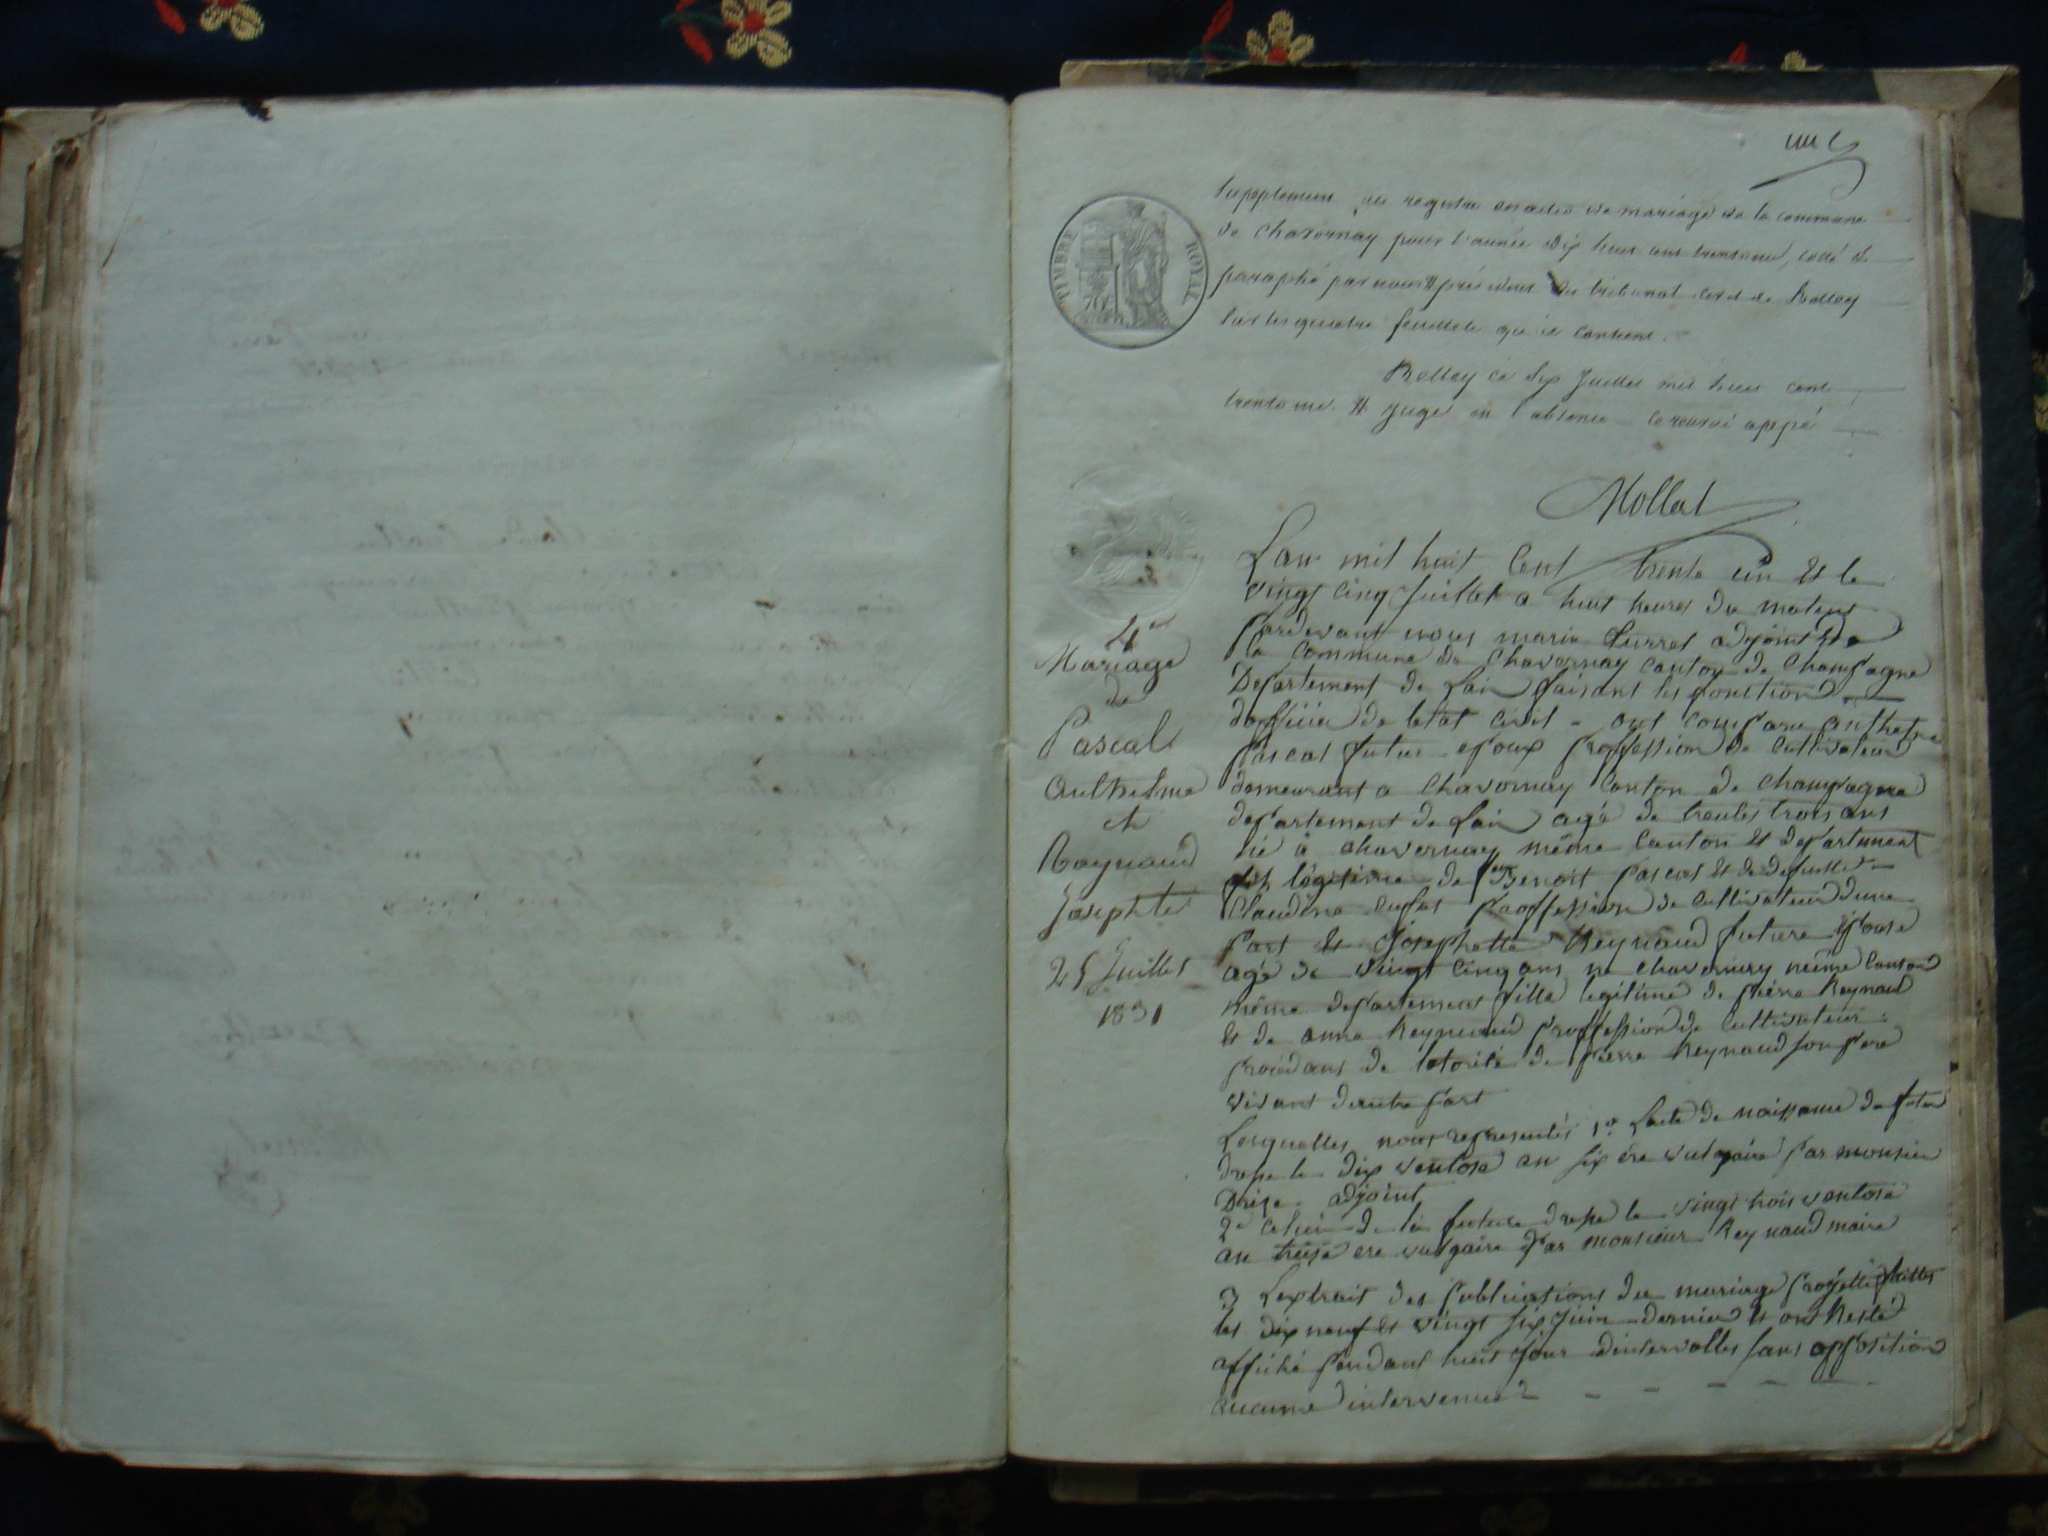 une
TIMBRE ROYAL
Supplement au registre des actes de mariage de la commune
de Chavornay pour l'année dix huit cent trente un, coté et
paraphé par nous # président du tribunal civil de Belley
sur les quatre feuillets qu'il contient.
Belley ce six Juillet mil huit cent
trente un. # juge en l'absence
Mollat
4
Mariage
de
Pascal
Anthelme
et
Raynaud
Josephte
25 Juillet
1831
Lan mil huit Cent trente un et le
vingt cinq Juillet a huit heures du matin
pardevant nous marin adjoint de
la Commune de Chavornay canton de Champagne
Departement de Lain faisant les fonction
dofficier de letat civil - ont comparu Anthelme
Pascal futur epoux proffession de Cultivateur
demeurant a Chavornay Canton de Champagne
departement de Lain agé de trentes trois ans
né à Chavornay même Canton et departement
fils légitime de feu Benoit Pascal et de defunte
Claudine proffession de Cultivateur dune
part et Josephette Reynaud future Epouse
agé de vingt cinq ans né Chavornay même Canton
même departement fille legitime de pierre Reynaud
et de anne Reynaud proffession de Cultivateur
procédant de lotorité de pierre Reynaud son pere
vivant dautre part
Lesquelles nous représentés 1o Lacte de naissance du futur
drapé le dix ventose an six ére vulgaire par monsieur
adjoint
2e celui de la future drapé le vingt trois ventose
an treise ere vulgaire par monsieur Reynaud maire
3 Lextrait des publications du mariage projetté faittes
les dix neuf et vingt six Juin dernier et ont Resté
affiché pendant huit jour dintervalles sans opposition
aucune intervenue